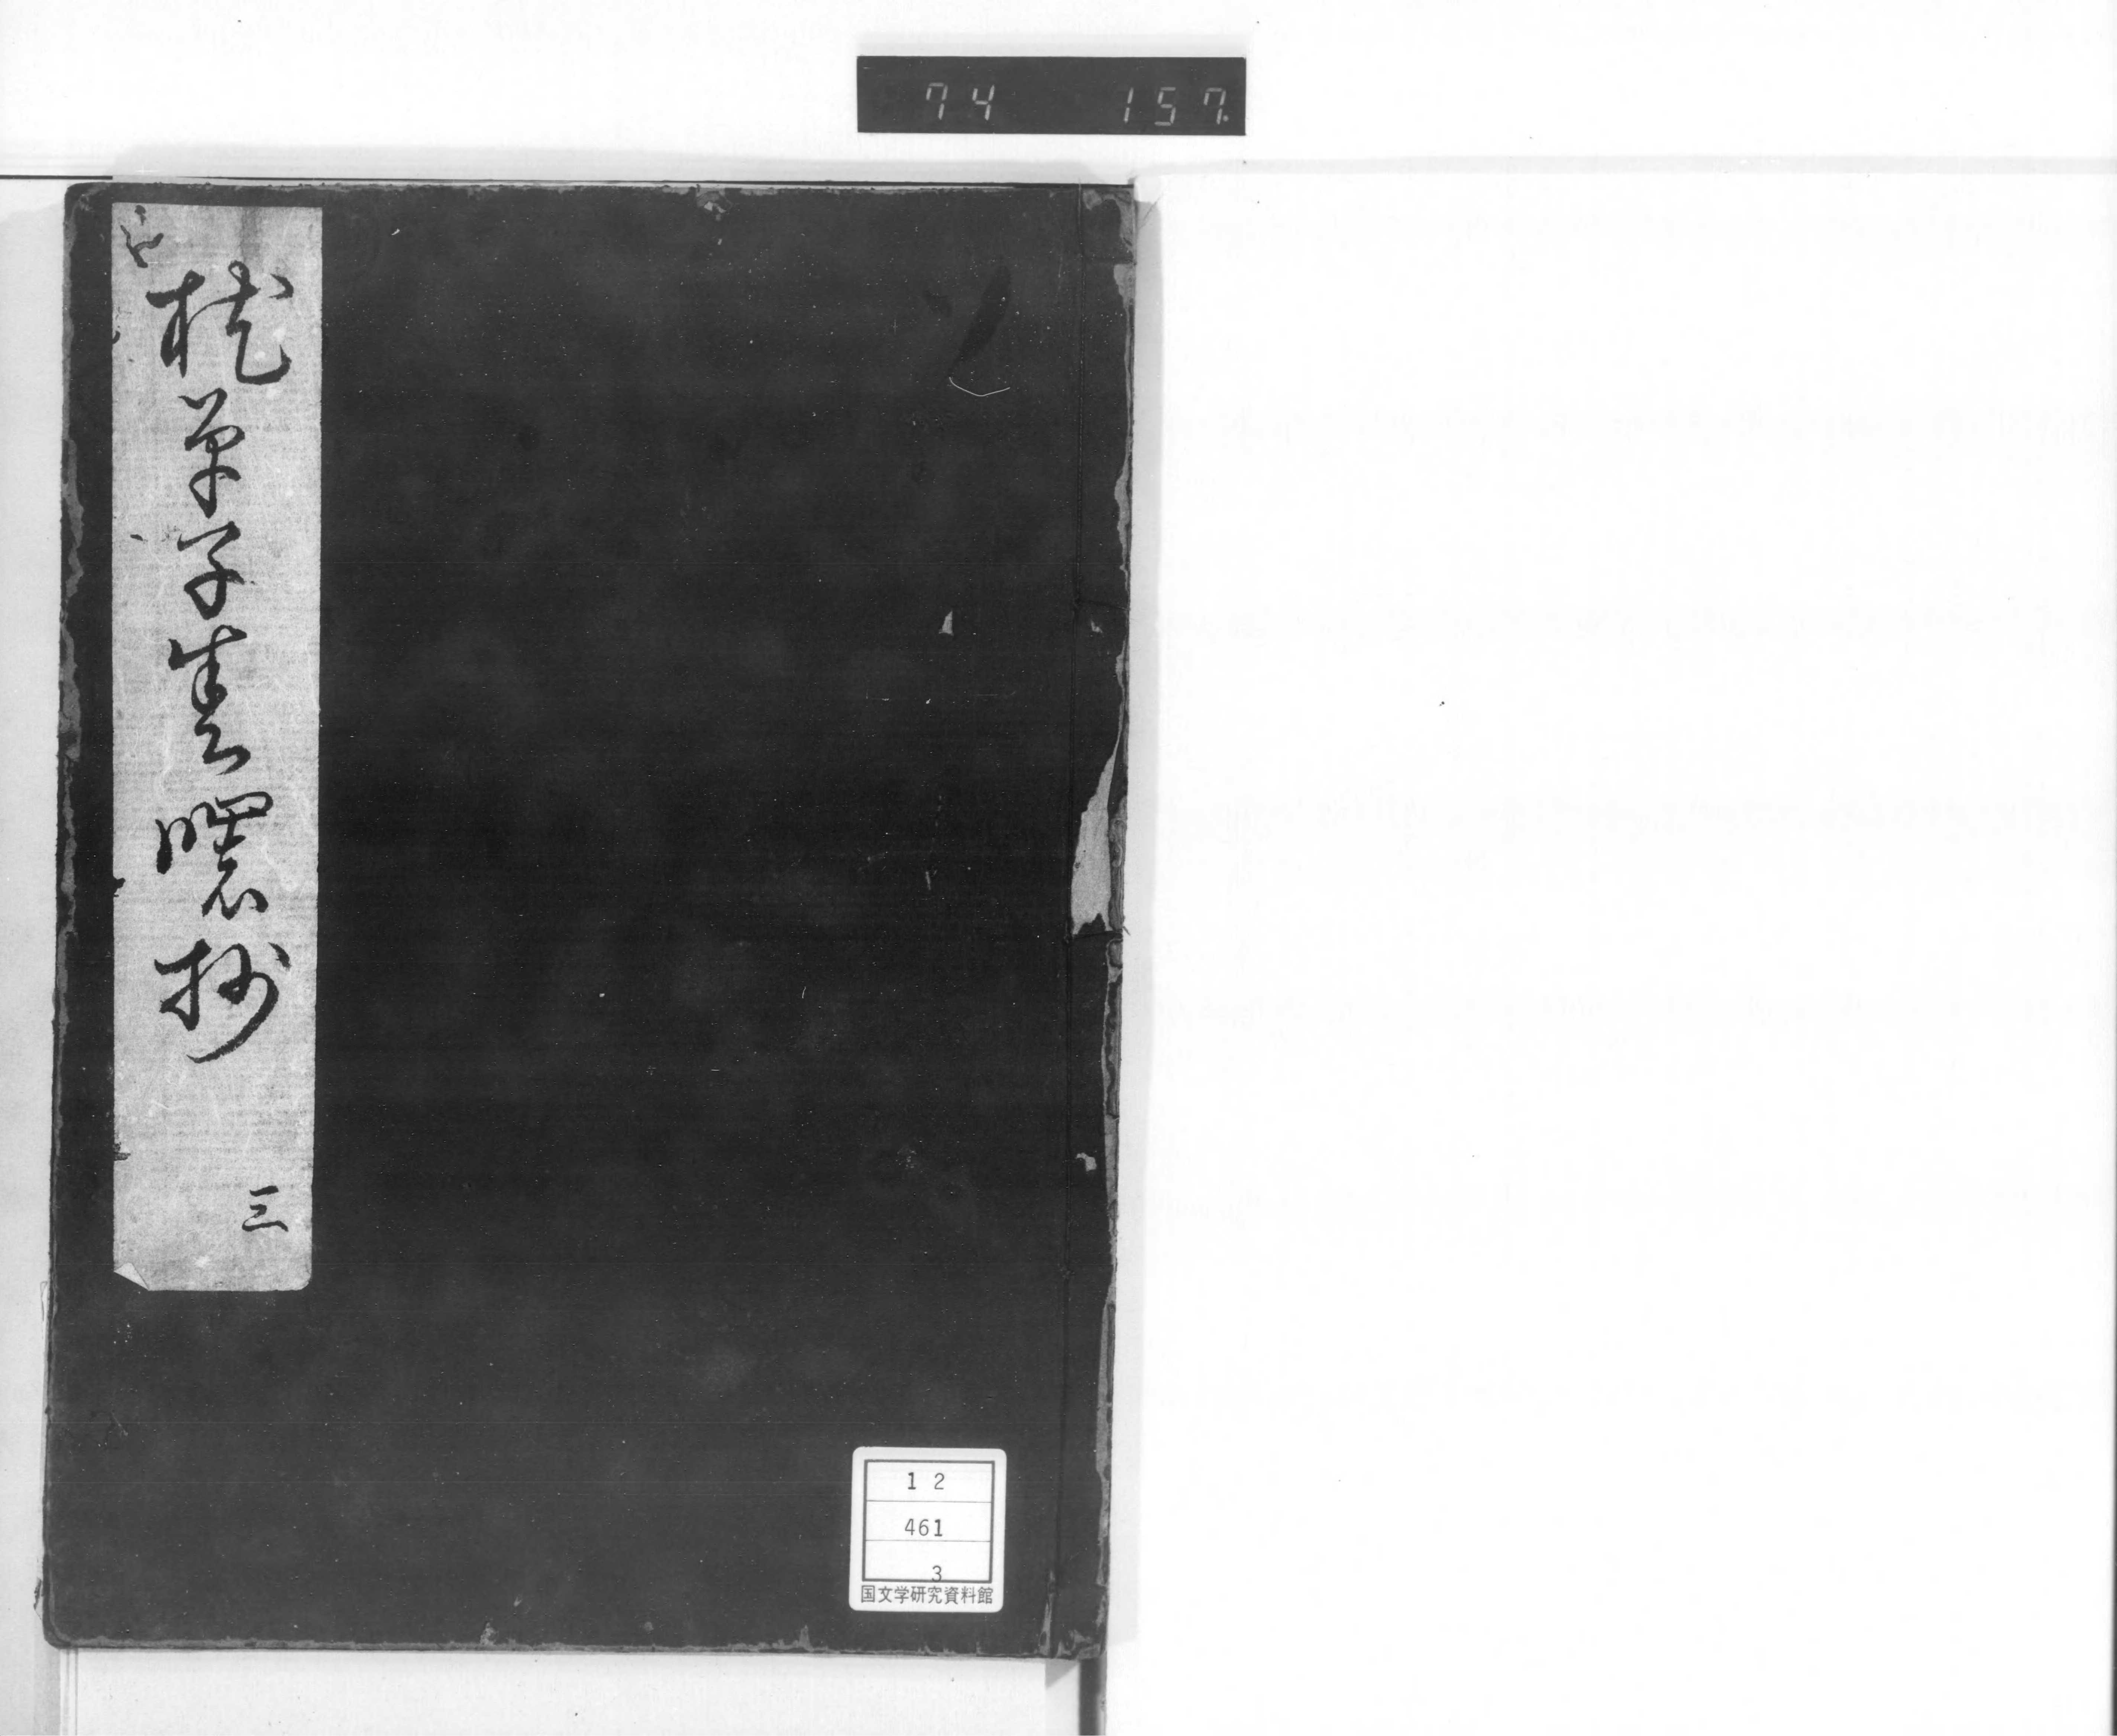 74 157.
枕草子春曙抄
三
12
461
3
国文学研究資料館